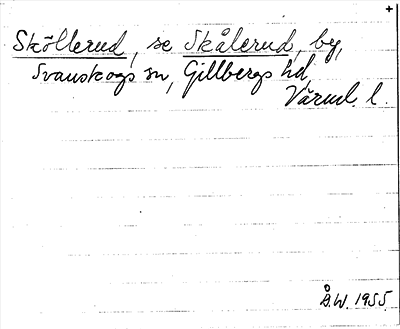 +
Sköllerud, se Skålerud, by,
Svanskogs sn, Gillbergs hd,
Värml. l.
Å.W. 1955.